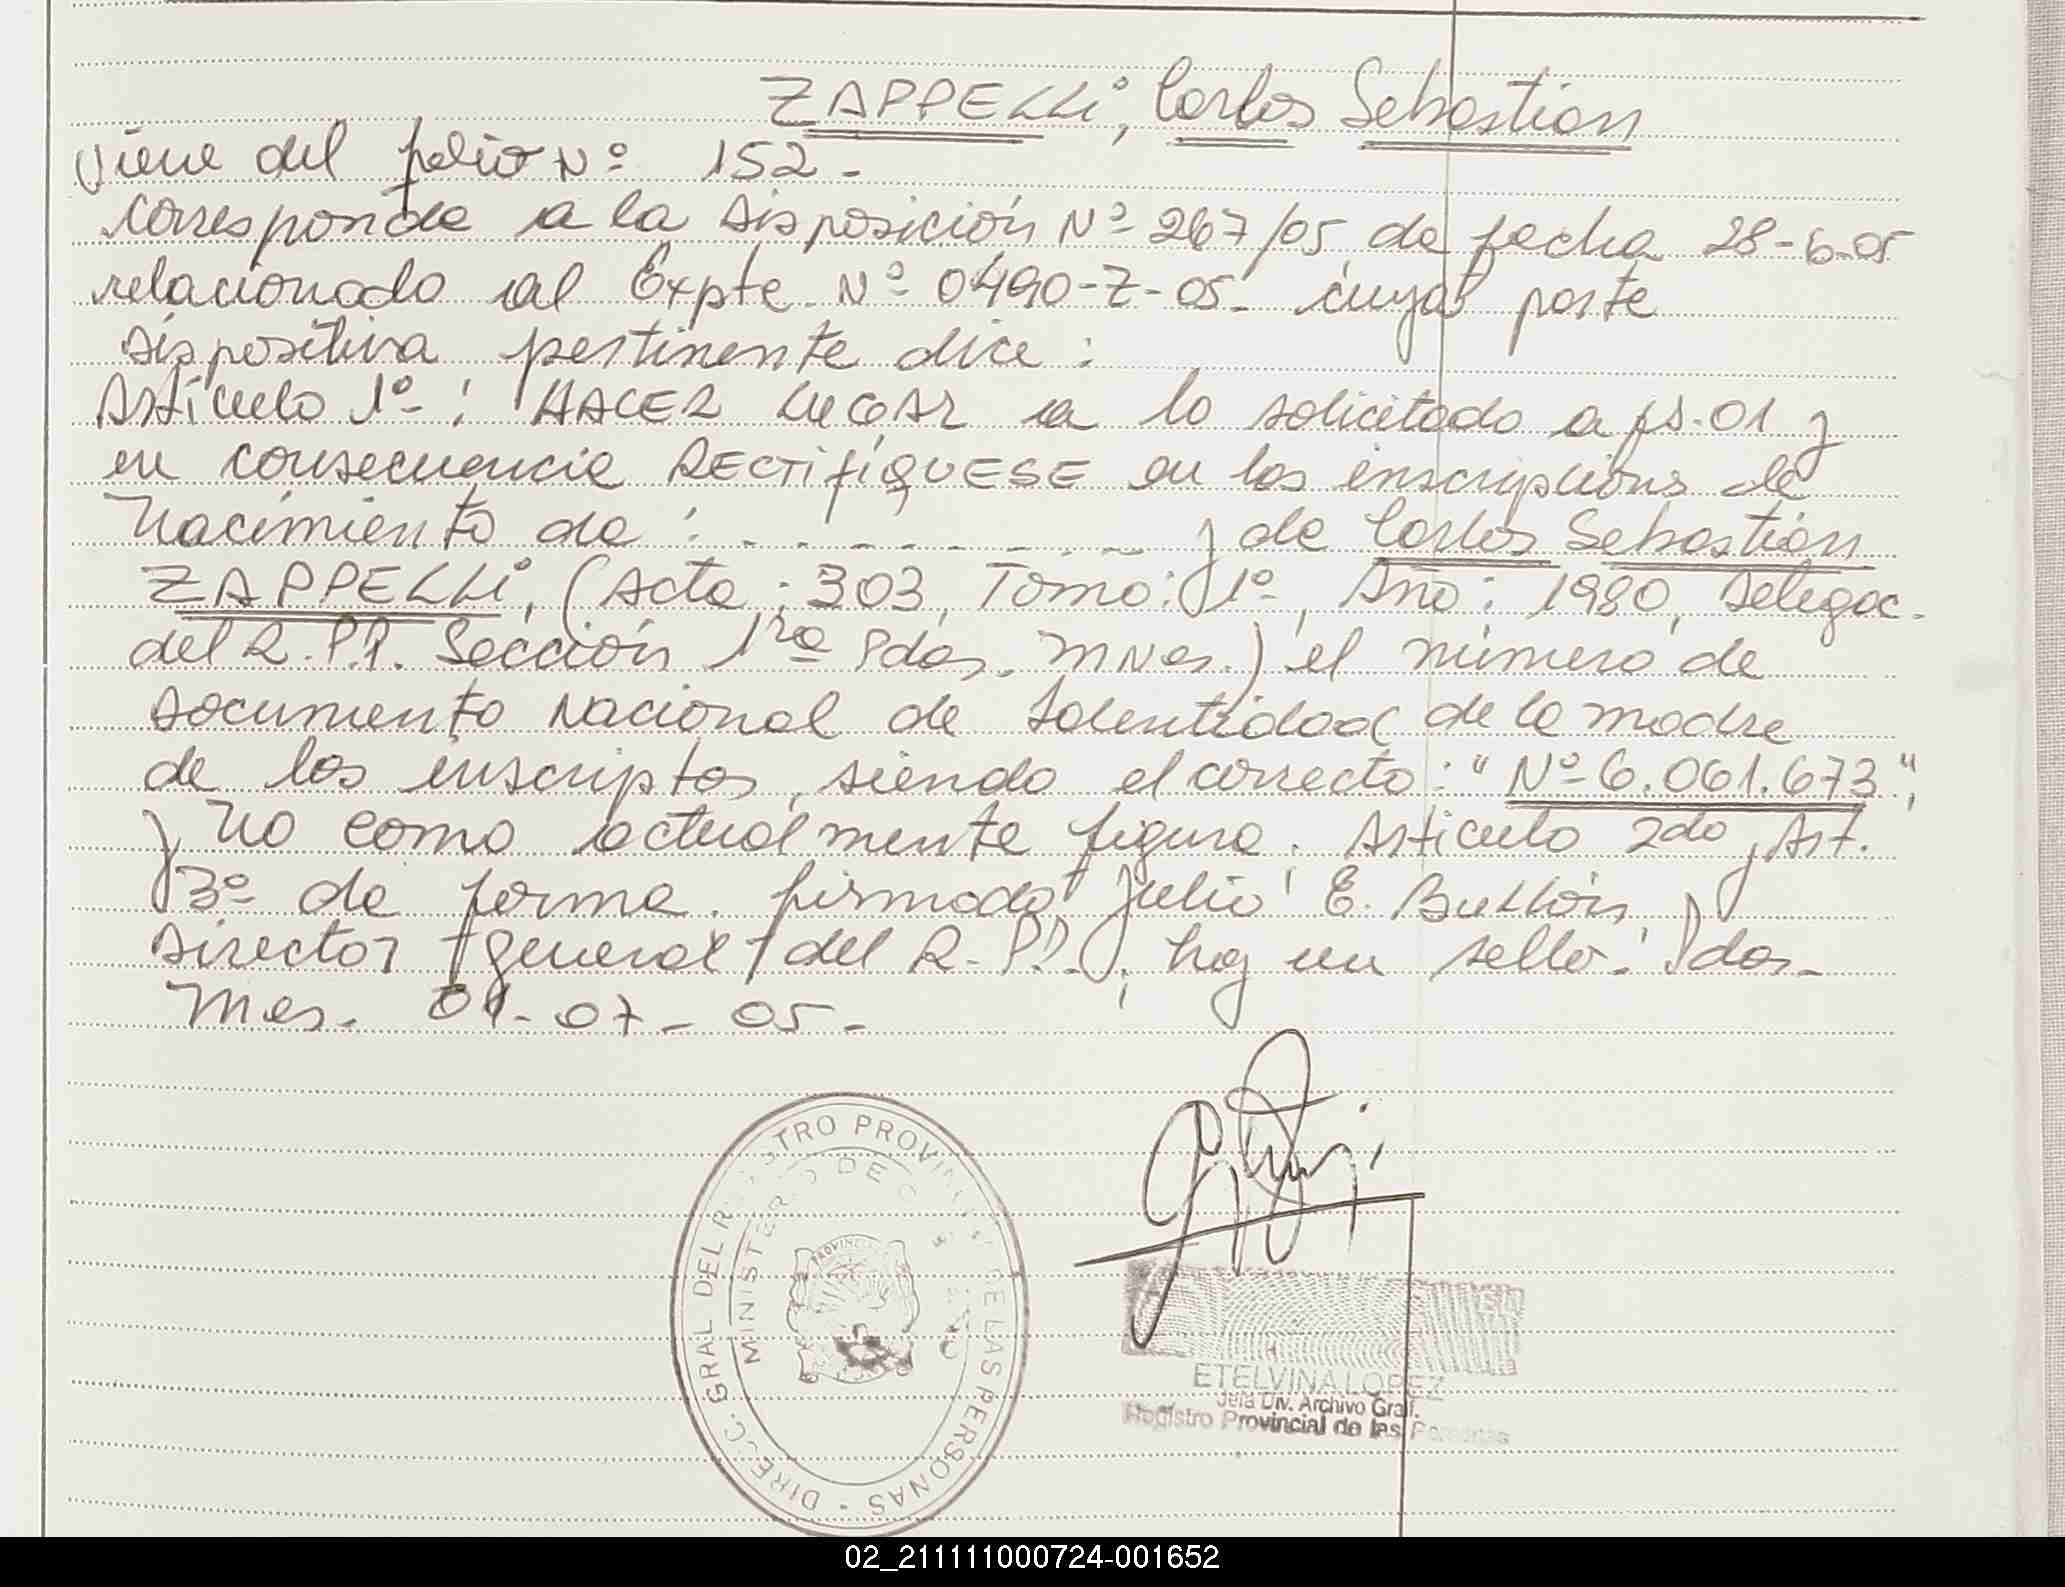 ZAPPELLi, Carlos Sebastian
Viene del folio Nº 152.-
Corresponde a la Disposición Nº 267/05 de fecha 28-6-05
relacionado al Expte. Nº 0490-Z-05. cuya parte
dispositiva pertinente dice:
Artículo 1º: HACER LUGAR a lo solicitado a fs. 01 y
en consecuencia RECTIFÍQUESE en las inscripciones de
Nacimiento de: . . - - - - - . . - y de Carlos Sebastián
ZAPPELLi, (Acta: 303, Tomo: 1º, Año: 1980, Delegac.
del R.P.P. Sección 1ra Pdas. MNes.) el número de
Documento Nacional de Identidad de la madre
de los inscriptos, siendo el correcto: "Nº 6.061.673",
y no como actualmente figura. Artículo 2do y Art.
3º de forma. firmado Julio E. Bullón
Director general del R.P.P., hay un sello. Pdas.
Mes. 01-07-05.-
DIRECC. GRAL DEL REGISTRO PROVINCIAL DE LAS PERSONAS
MINISTERIO DE
PROVINCIA
ETELVINA LOPEZ
Jefa Div. Archivo Gral.
Registro Provincial de las Personas
02_211111000724-001652